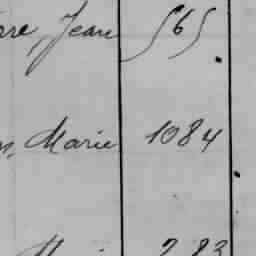 rre, Jean 565
, Marie 1084
283